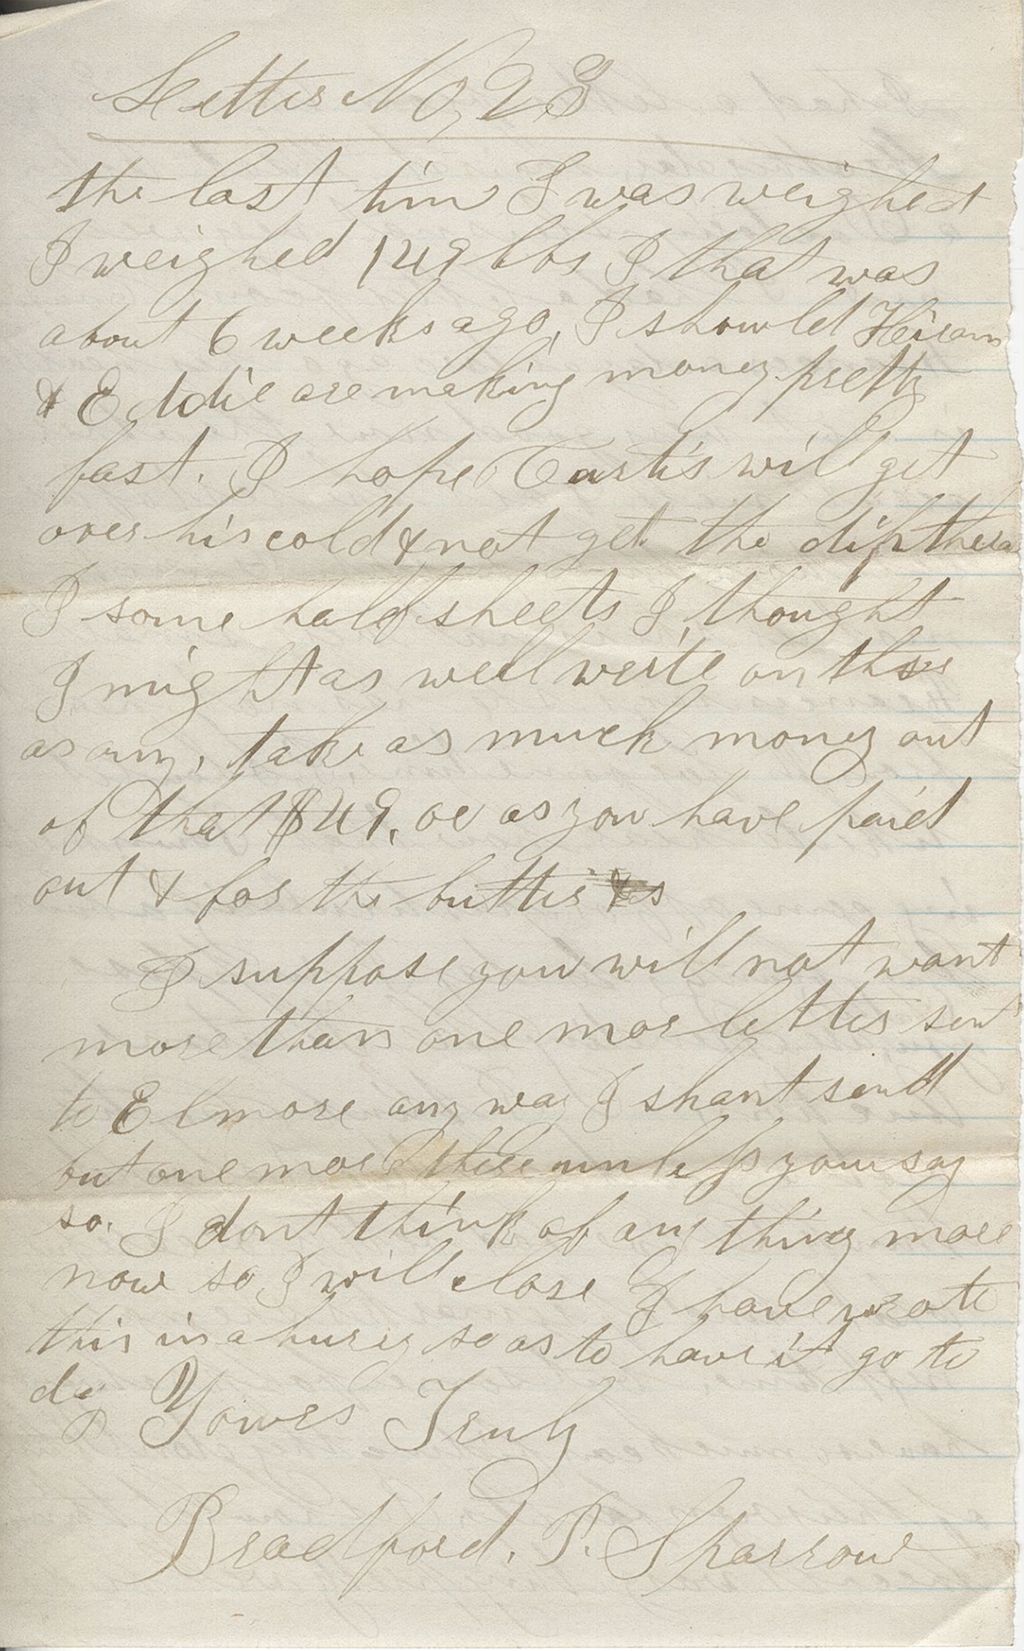 Letter No, 28
the last tim I was weighed
I weighed 149 lbs I that was
about 6 weeks ago, I showld Hiram
& Eddie are making money pretty
fast. I hope Curtis will get
over his cold & not get the diptheria
I some half sheets I thought
I might as well write on thos
as any, take as much money out
of that $49, oe as you have paid
out & for the butter &s
I suppose you will not want
more than one more letter sent
to Elmore any way I shant send
but one more there unless you say
so. I dont think of any thing more
now so I will close I have wrote
this in a hurry so as to have it go to
day Yours Truly
Bradford. P. Sparrow